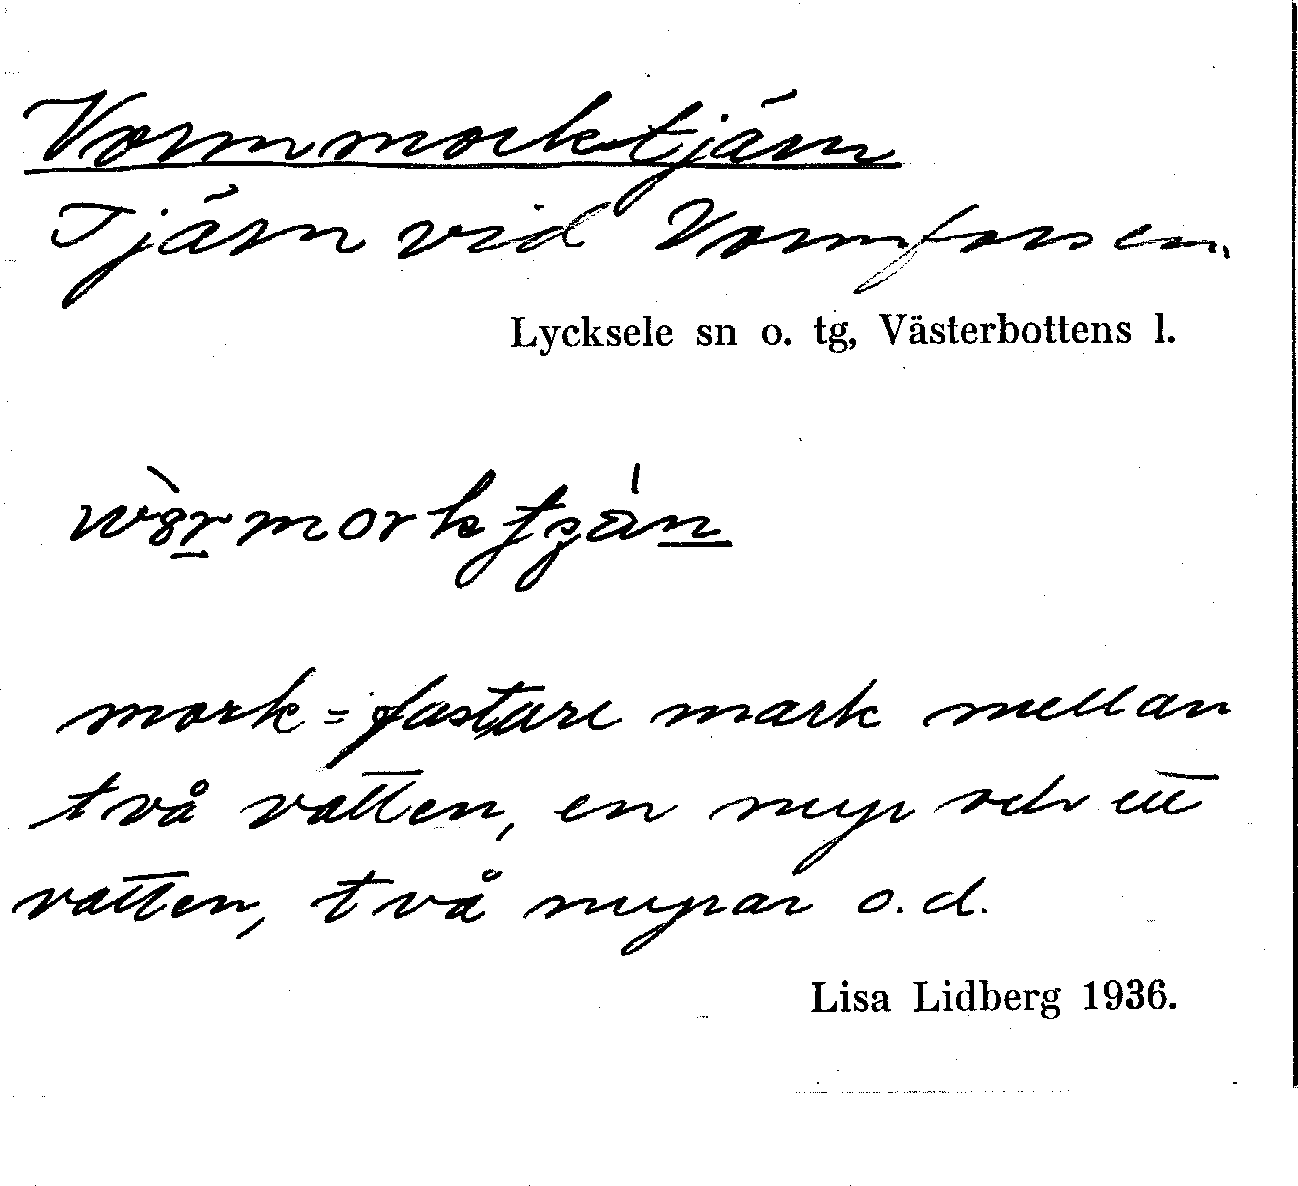 Vormmorktjärn
Tjärn vid Vormforsen.
Lycksele sn o. tg, Västerbottens l.
mork = fastare mark mellan
två vatten, en myr och ett
vatten, två myrar o.d.
Lisa Lidberg 1936.